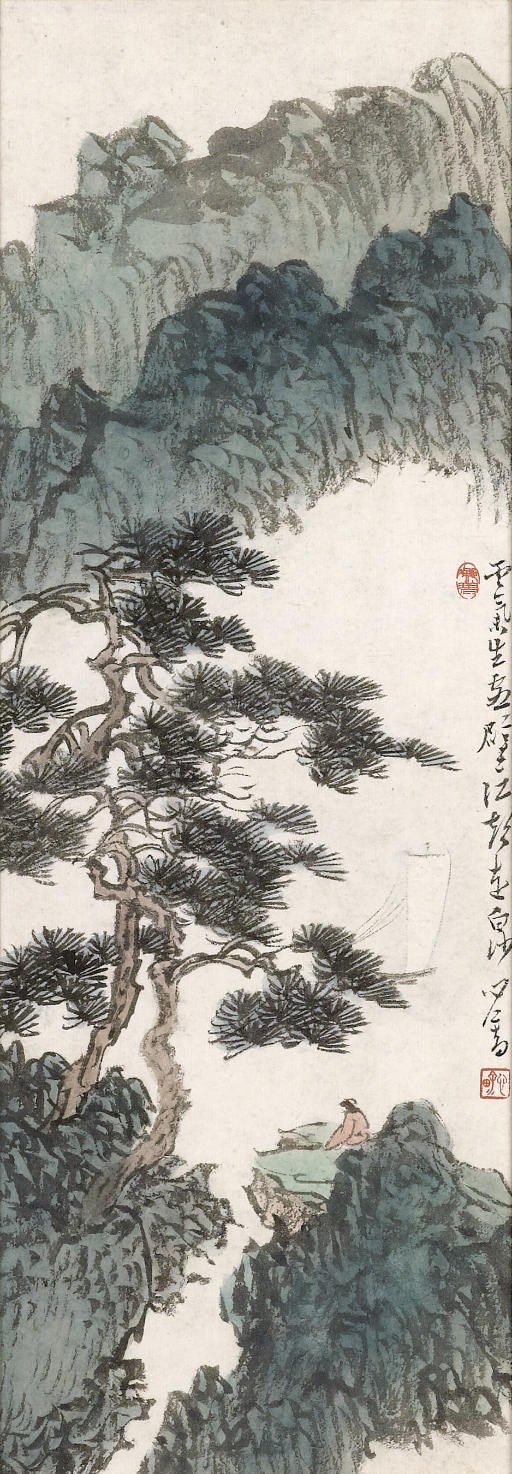 雲氣生虛壁江聲走白沙 心畬